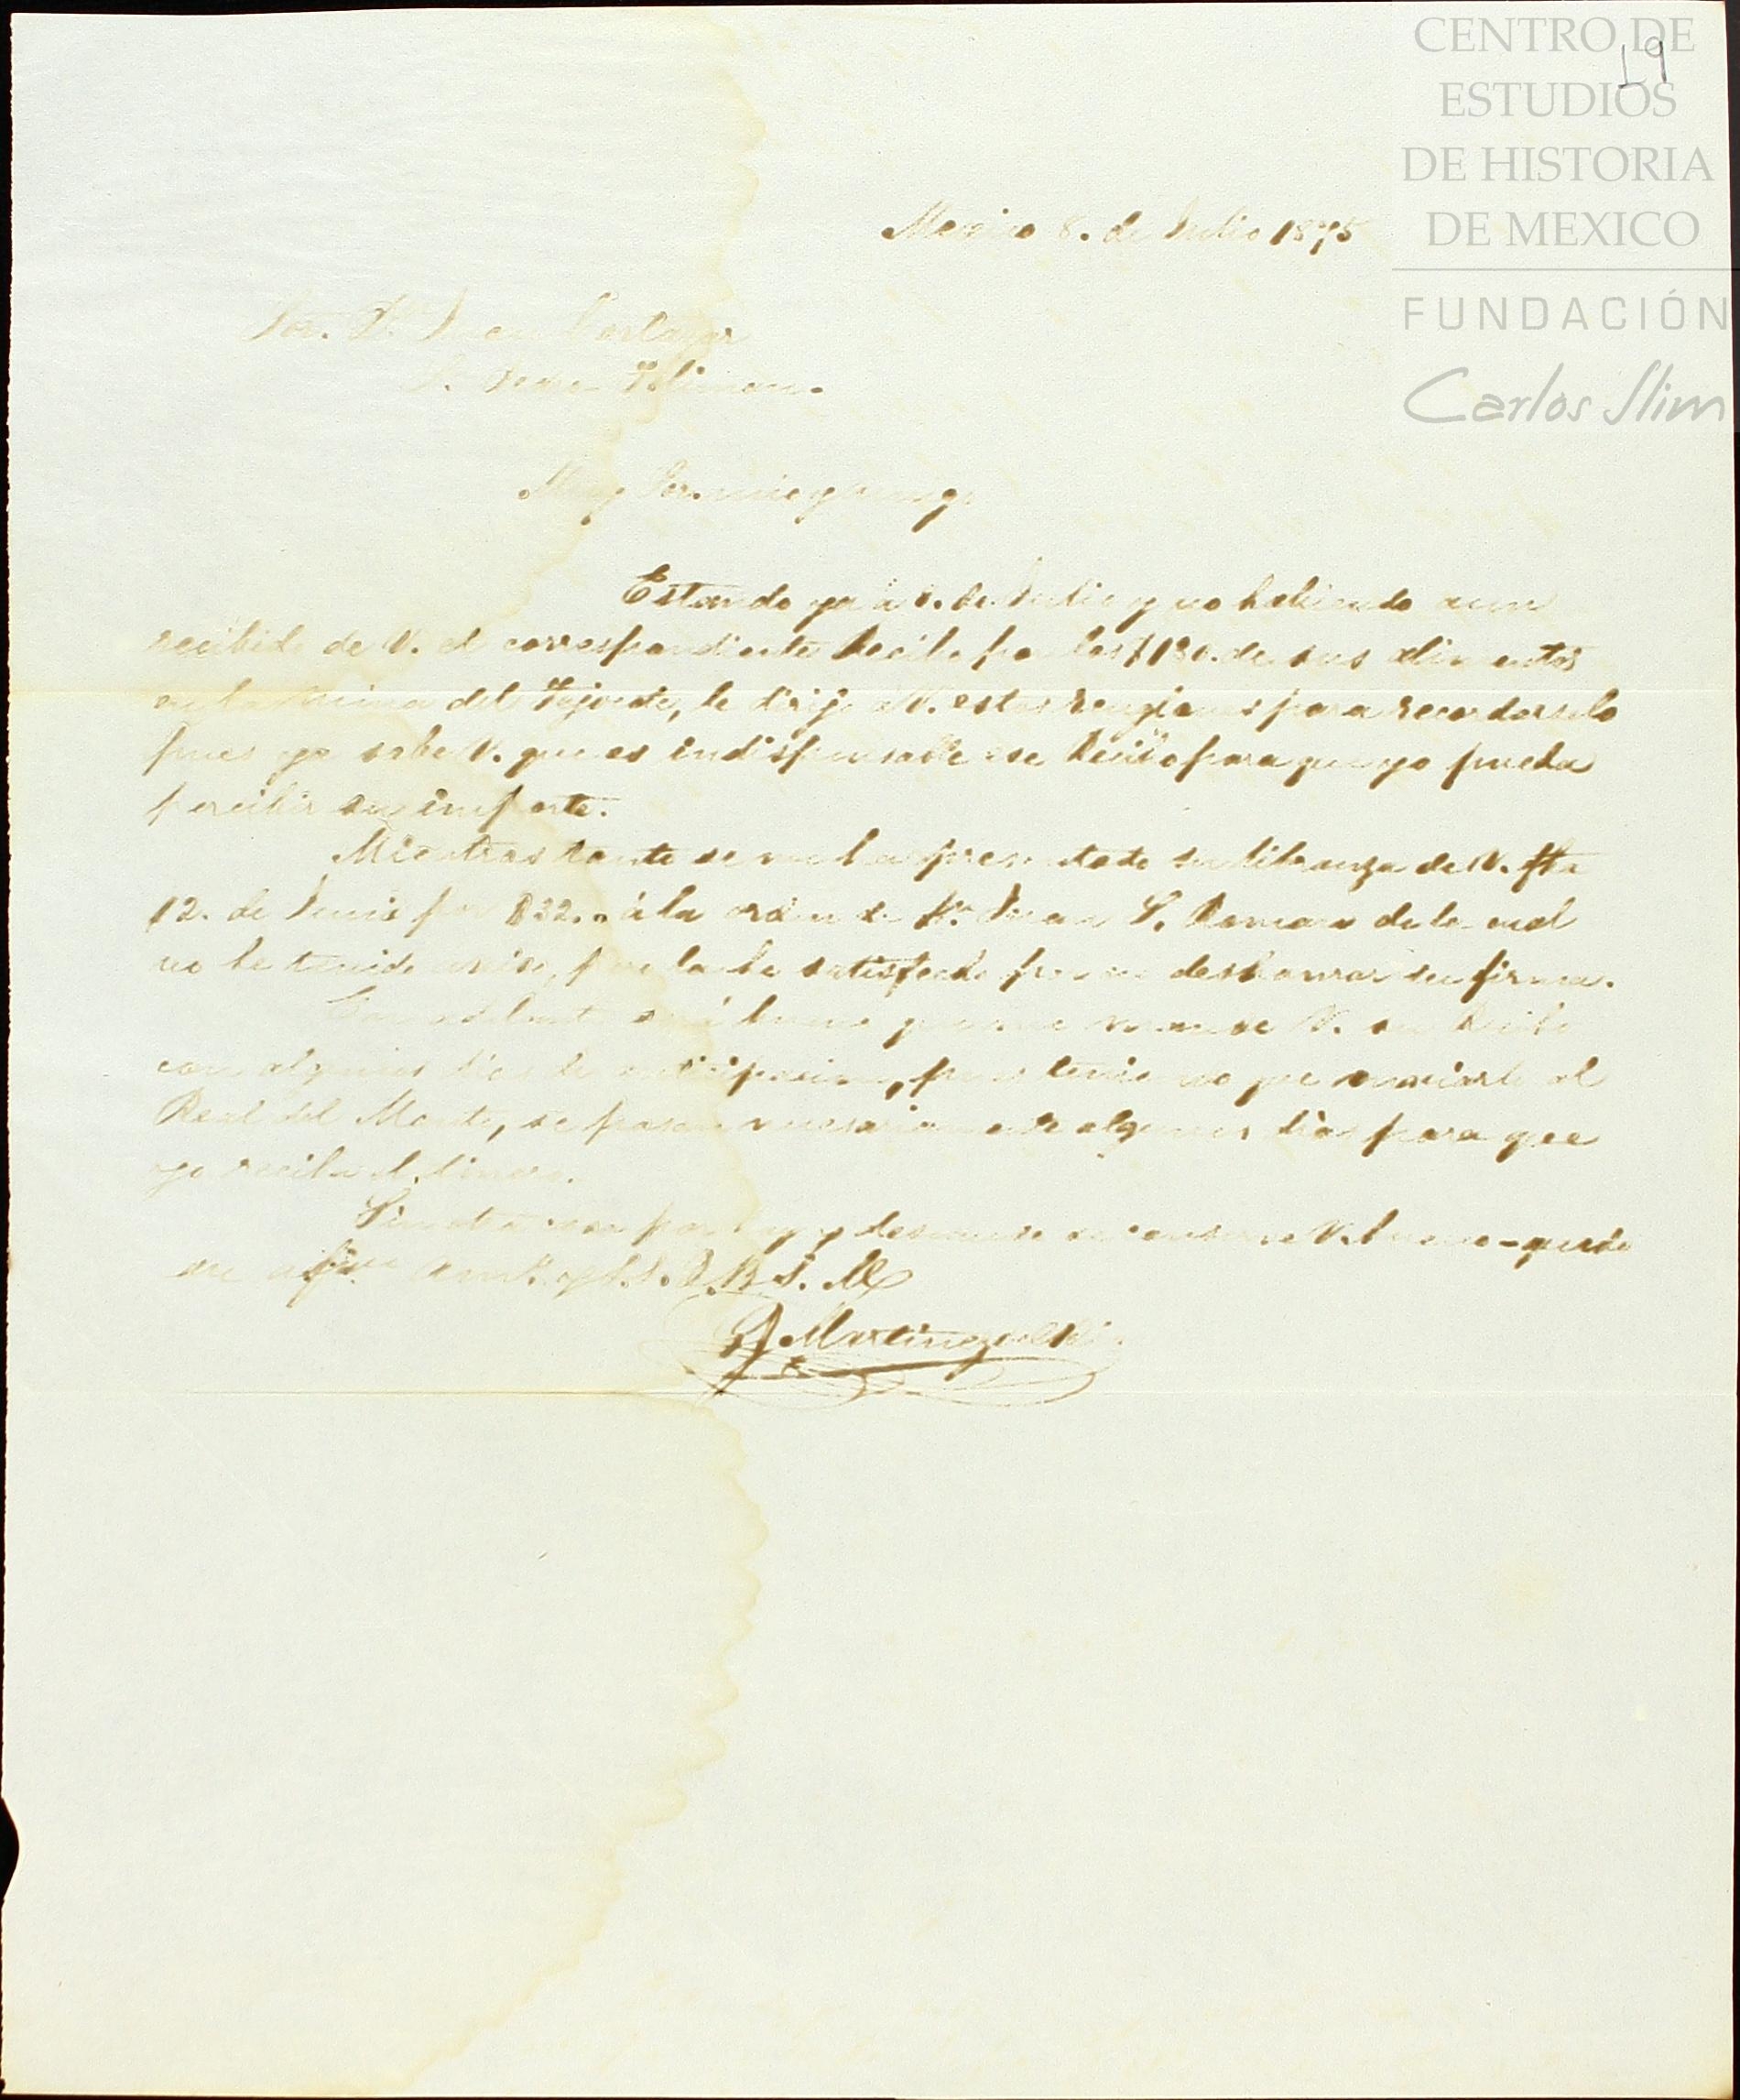 CENTRO DE
19
ESTUDIOS
DE HISTORIA
DE MEXICO
FUNDACIÓN
Carlos Slim
Mexico 8. de Julio 1875
Sor. Dn. Juan Cortazar
Toliman.
Muy Sor. mio y amigo
Estando ya á 8. de Julio y no habiendo aun
recibido de V. el correspondiente Recibo por los $180. de sus alimentos
en la mina del, le dirijo á V. estos renglones para recordarselo
pues ya sabe V. que es indispensable ese Recibo para que yo pueda
percibir su importe.
Mientras tanto se me ha presentado su libranza de V. fha
12. de Junio por $32. á la orden de Dn. Juan de la cual
no he tenido aviso, pero la he satisfecho por no deshonrar su firma.
En adelante será bueno que me mande V. su Recibo
con algunos dias de anticipacion, pues teniendo que enviarlo al
Real del Monte, se pasan necesariamente algunos dias para que
yo reciba el dinero.
Sin otra cosa por hoy y deseando se conserve V. bueno quedo
su afmo. amigo y S. S. Q. B. S. M.
Martinez